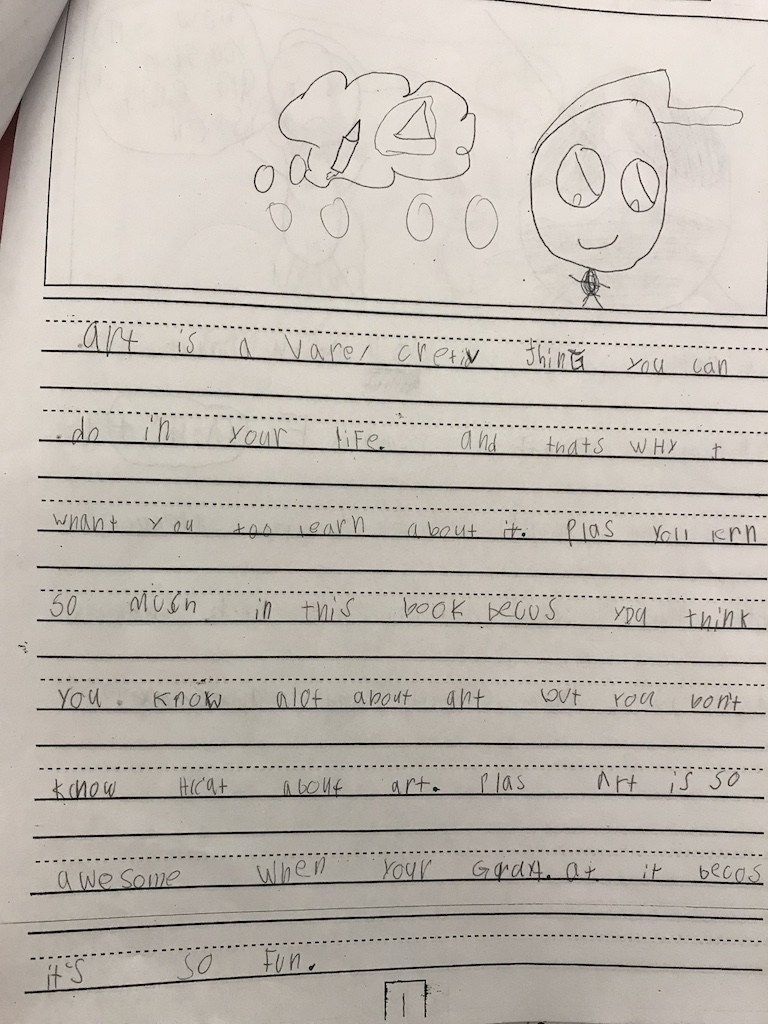 art is a Varey cretiv thing you can
do in your life. and thats WHY I
whant you too learn about it. Plas you lern
so much in this book becus you think
you know alot about art but you don't
know that about art. Plas Art is so
awesome when your Grat. at it becos
it's so Fun.
1